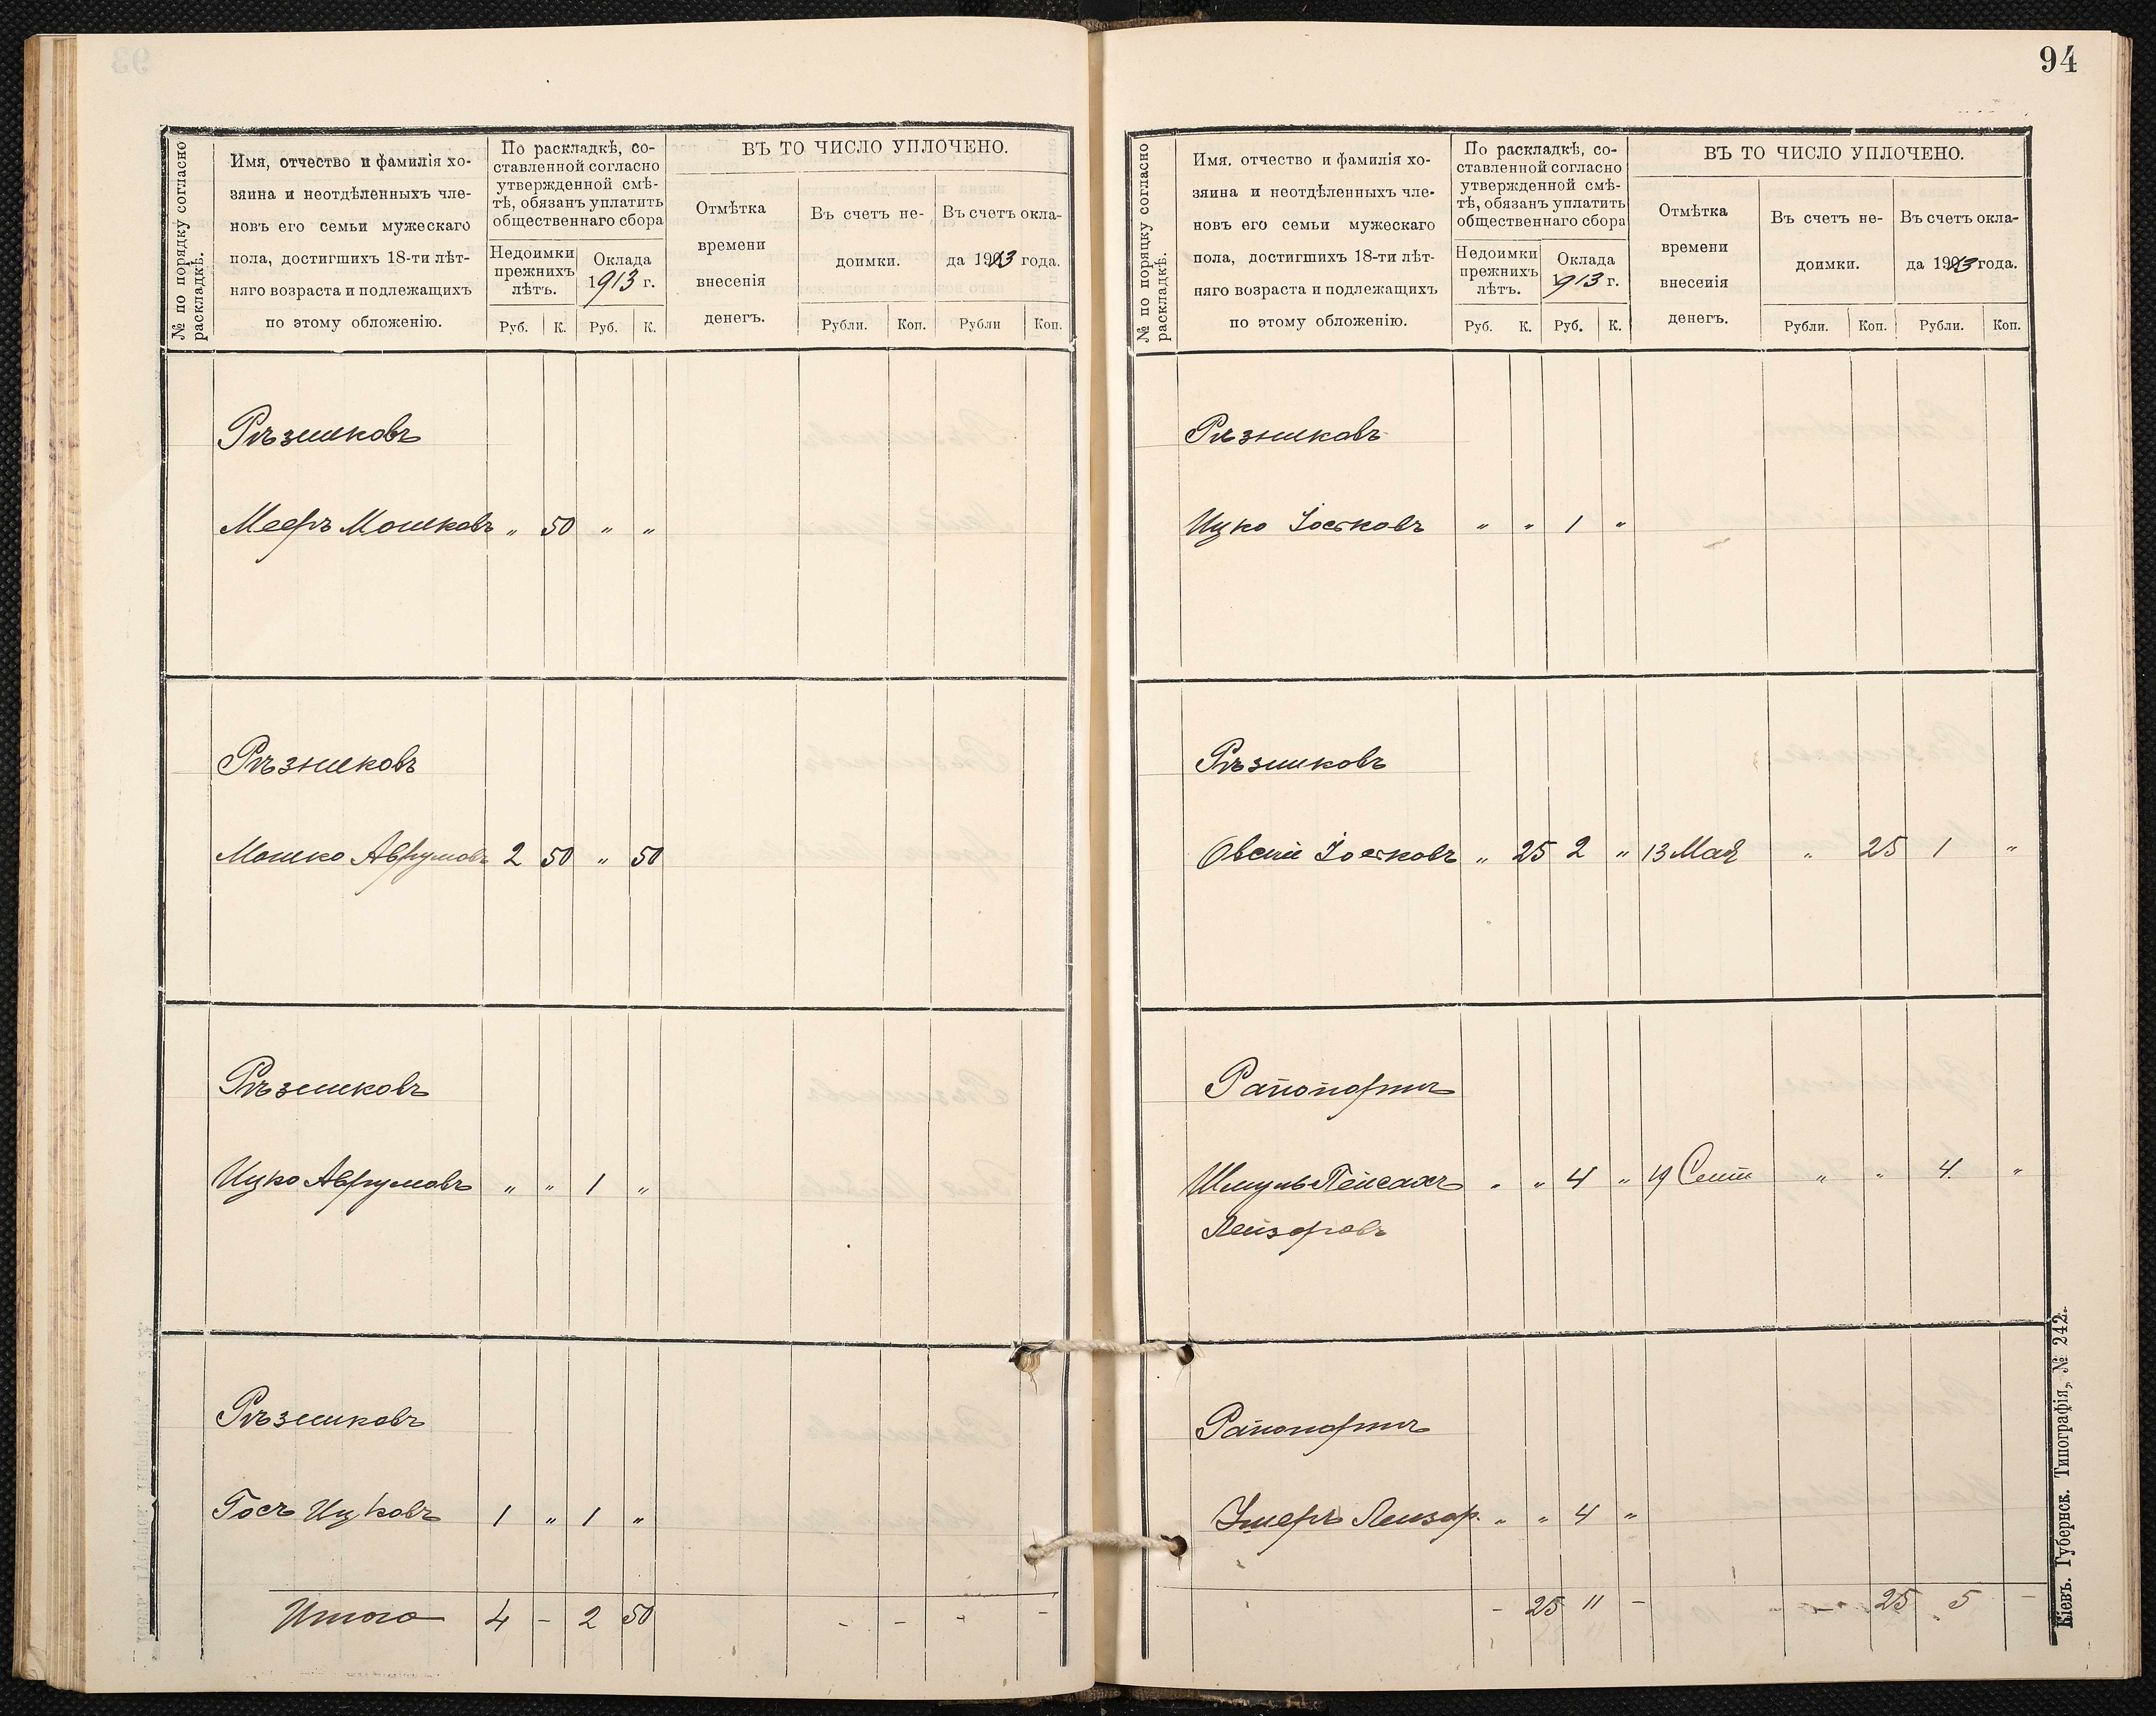 94
№ по порядку согласно
раскладкѣ.
Имя, отчество и фамилія хо-
зяина и неотдѣленныхъ чле-
новъ его семьи мужескаго
пола, достигшихъ 18-ти лѣт-
няго возраста и подлежащихъ
по этому обложенію.
По раскладкѣ, со-
ставленной согласно
утвержденной смѣ-
тѣ, обязанъ уплатить
общественнаго сбора
Недоимки
прежнихъ
лѣтъ.
Оклада
1913 г.
Руб. К. Руб. К.
ВЪ ТО ЧИСЛО УПЛОЧЕНО.
Отмѣтка
времени
внесенія
денегъ.
Въ счетъ не-
доимки.
Въ счетъ окла-
да 1913 года.
Рубли. Коп. Рубли Коп.
Рѣзниковъ
Мееръ Мошковъ " 50 " "
Рѣзниковъ
Мошко Аврумовъ 2 50 " 50
Рѣзниковъ
Ицко Аврумовъ " " 1 "
Рѣзниковъ
Госъ Ицковъ 1 " 1 "
Итого 4 - 2 50 - - - -
№ по порядку согласно
раскладкѣ.
Имя, отчество и фамилія хо-
зяина и неотдѣленныхъ чле-
новъ его семьи мужескаго
пола, достигшихъ 18-ти лѣт-
няго возраста и подлежащихъ
по этому обложенію.
По раскладкѣ, со-
ставленной согласно
утвержденной смѣ-
тѣ, обязанъ уплатить
общественнаго сбора
Недоимки
прежнихъ
лѣтъ.
Оклада
1913 г.
Руб. К. Руб. К.
ВЪ ТО ЧИСЛО УПЛОЧЕНО.
Отмѣтка
времени
внесенія
денегъ.
Въ счетъ не-
доимки.
Въ счетъ окла-
да 1913 года.
Рубли. Коп. Рубли. Коп.
Рѣзниковъ
Ицко Іосковъ " " 1 "
Рѣзниковъ
Овсій Іосковъ " 25 2 " 13 Мая " 25 1 "
Рапопортъ
Шмуль Пейсахъ " " 4 " 19 Сент " " 4 "
Лейзоровъ
Рапопортъ
Умеръ Лейзор. " " 4 "
- 25 11 - - 25 5 -
Кіевъ. Губернск. Типографія, № 242.